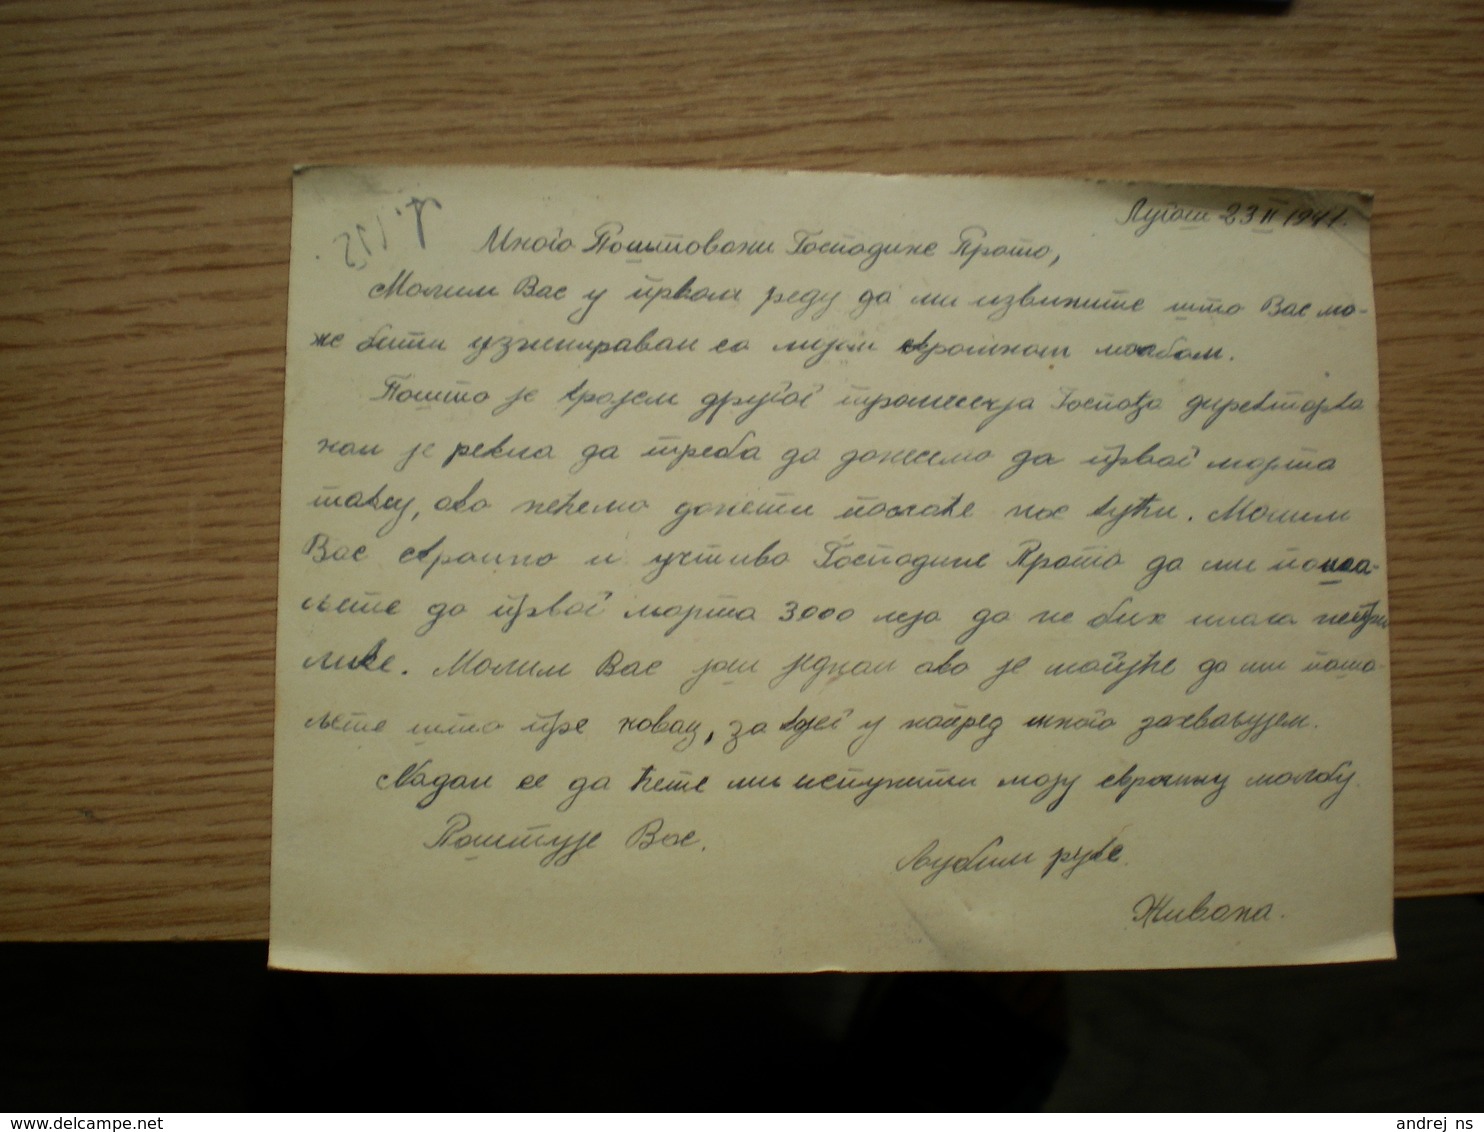 Лугош 23 II 1941.
Много Поштовани Господине Прото,
Молим Вас у првом реду да ми извините што Вас мо-
же бити узнемиравам са мојом скромном молбом.
Пошто је крајем другог Госпођа директорка
нам је рекла да треба да донесемо до првог марта
таксу, ако нећемо донети послаће нас кући. Молим
Вас скромно и учтиво Господине Прото да ми поша-
љете до првог марта 3000 леја да не бих имала непри
лике. Молим Вас још једанпут ако је могуће да ми поша-
љете што пре новац, за кјег у напред много захваљујем.
Надам се да ћете ми испунити моју скромну молбу.
Поштује Вас.
Љубим руке.
Живана.
andrej_ns